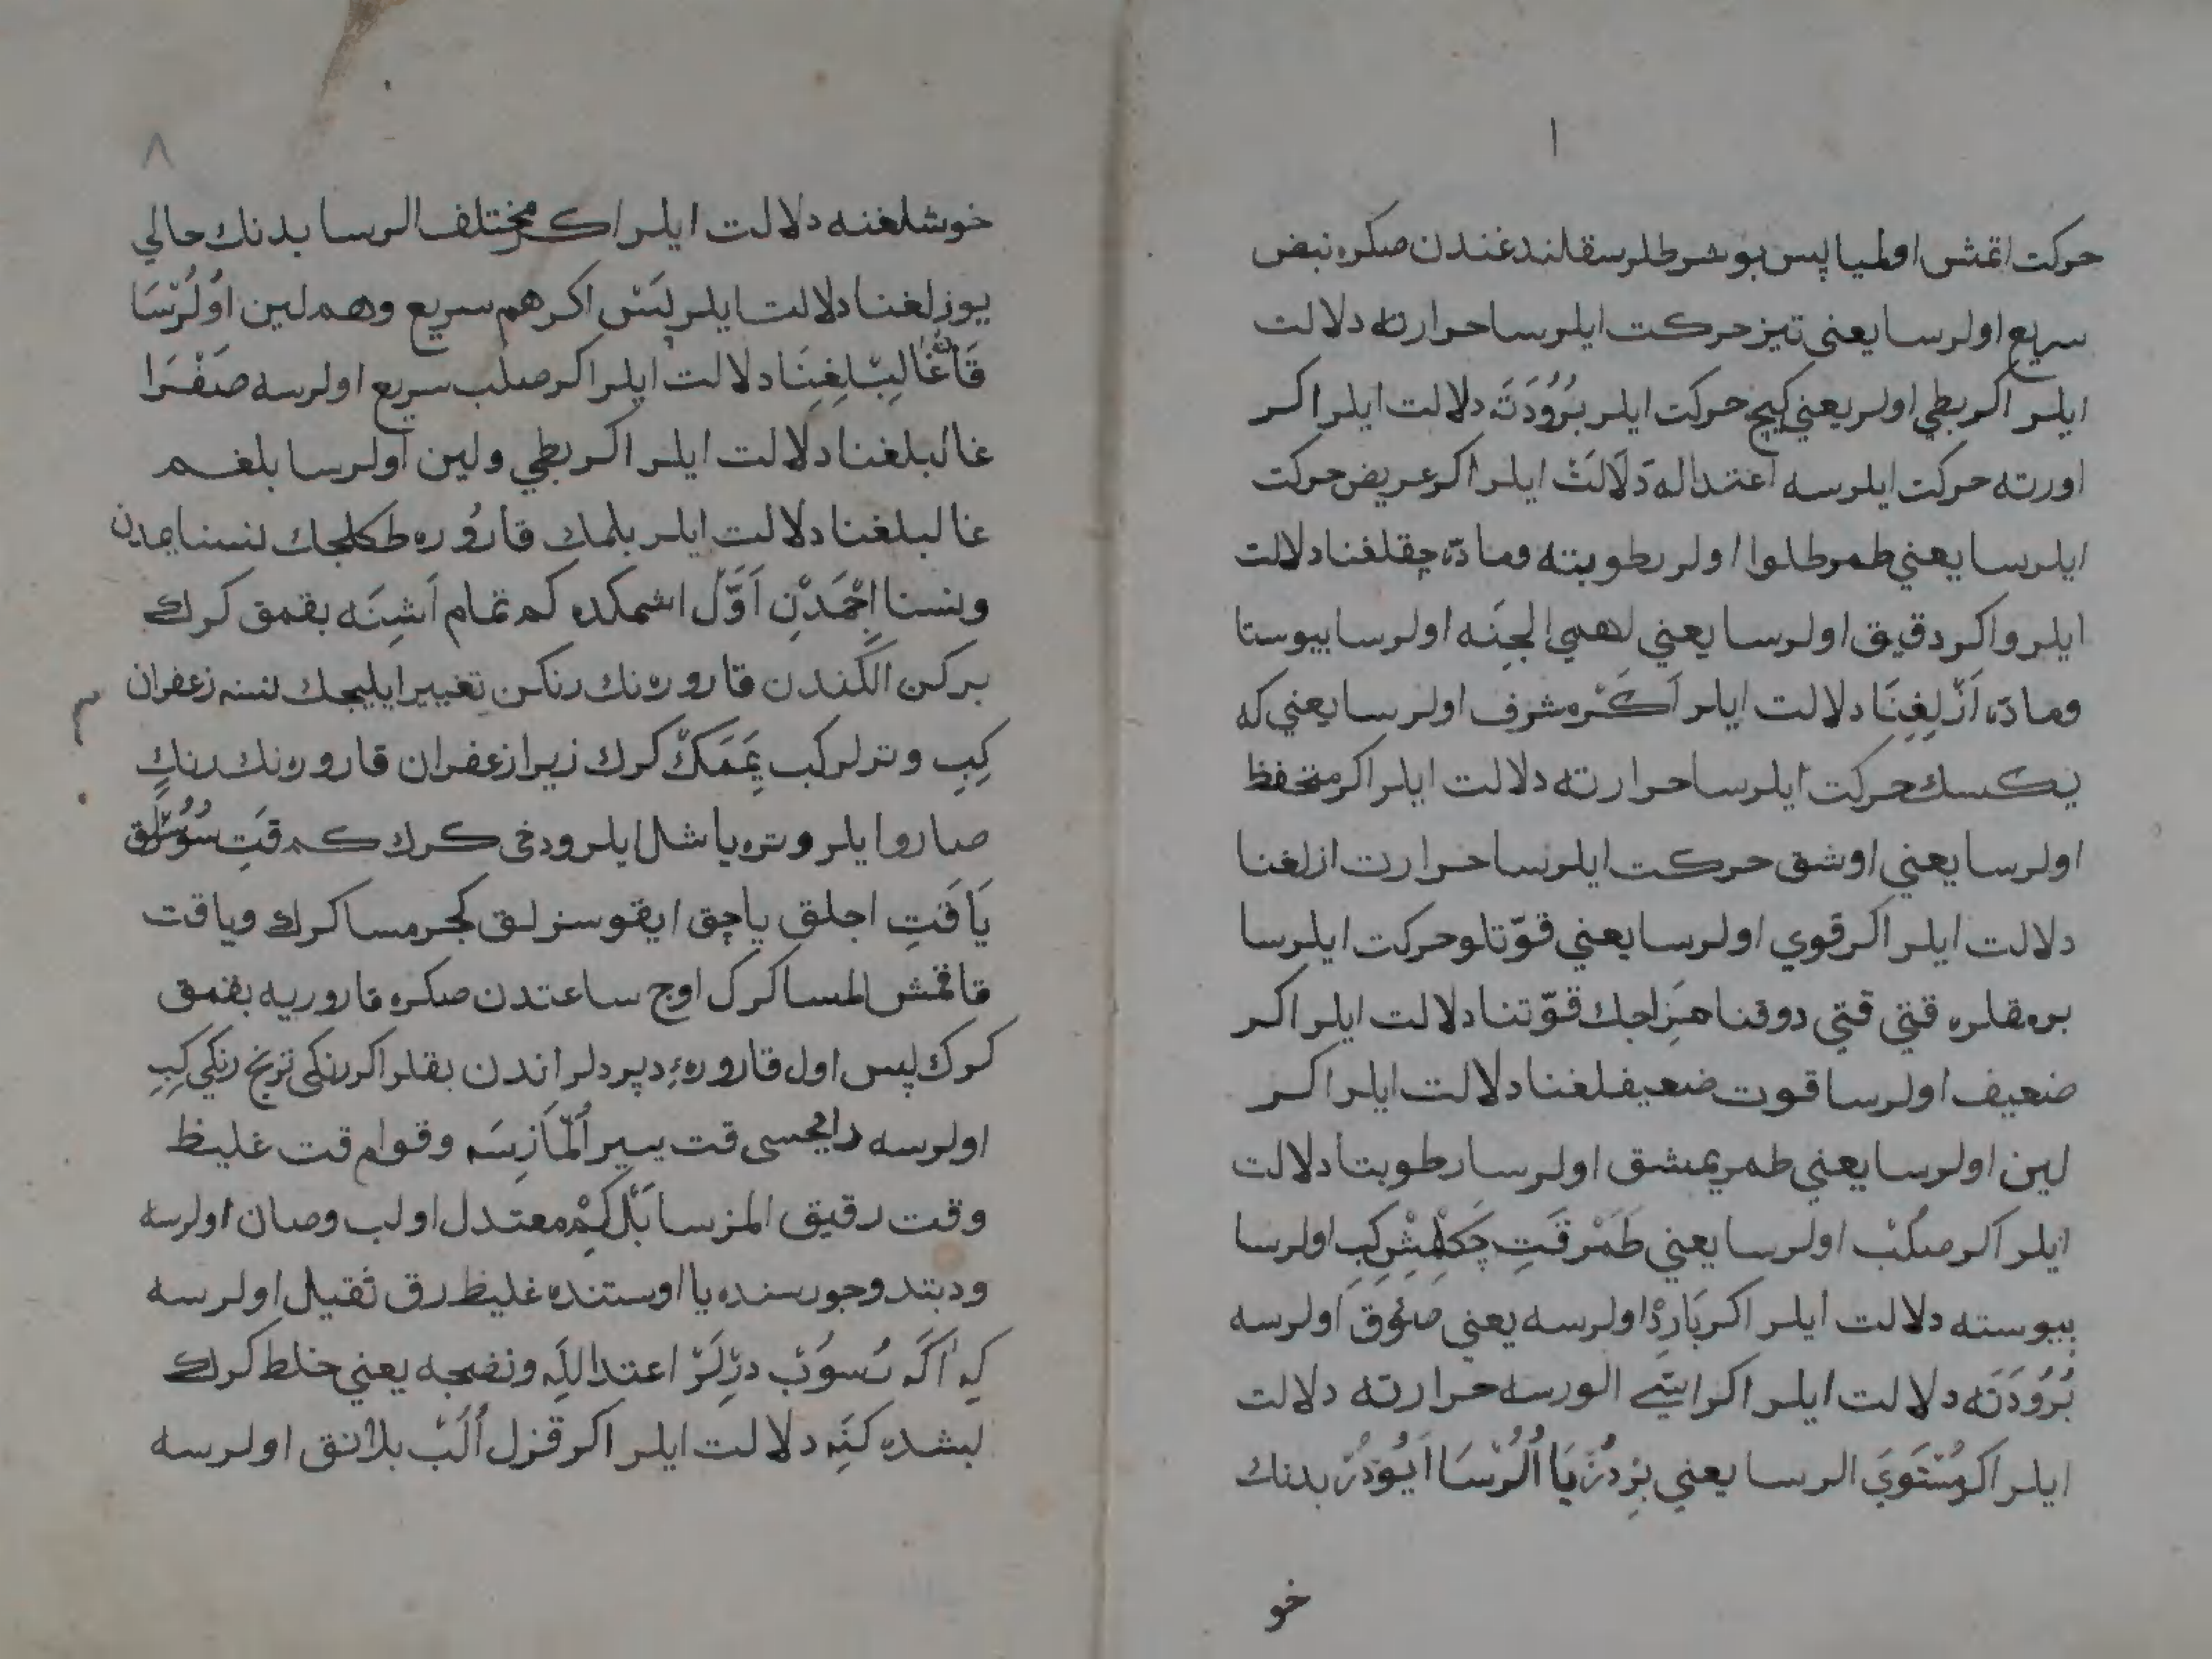 ١
حركت اتمش اولميا پس بو شرطلر سقلندغندن صكره نبض
سريع اولرسا يعني تيز حركت ايلرسا حرارته دلالت
ايلر اكر بطي اولر يعني كيج حركت ايلر بُرُودَتَه دلالت ايلر اكر
اورته حركت ايلرسه اعتداله دَلَالَتْ ايلر اكر عريض حركت
ايلرسا يعني طمر طلوا اولر رطوبته وماده چقلغنا دلالت
ايلر واكر دقيق اولرسا يعني اولرسا يبوستا
وماده اَزْلِغِنَا دلالت ايلر اَكَرْ مشرف اولرسا يعني كه
يكسك حركت ايلرسا حرارته دلالت ايلر اكر منخفظ
اولرسا يعني اوشق حركت ايلرسا حرارت ازلغنا
دلالت ايلر اكر قوي اولرسا يعني قوّتلو حركت ايلرسا
برمقلره قتي قتي دوقنا مزاجك قوّتنا دلالت ايلر اكر
ضعيف اولرسا قوت ضعيفلغنا دلالت ايلر اكر
لين اولرسا يعني طمر يمشق اولرسا رطوبتا دلالت
ايلر اكر صلب اولرسا يعني طَمَرْ قَتِ چكلمش كِبِ اولرسا
يبوسته دلالت ايلر اكر بَارِدْ اولرسه يعني صوُوق اولرسه
بُرُودَتَه دلالت ايلر اكر ايسّي الورسه حرارته دلالت
ايلر اكر مُسْتَوِي الرسا يعني بِرْ دُزَيَا اُلُرْسَا اَيُودُرْ بدنك
خو
٨
خوشلغنه دلالت ايلر اكر مختلف الرسا بدنك حالي
يوزلغنا دلالت ايلر پَسْ اكر هم سريع وهم لين اوُلُرْسَا
قَانْ غَالِبْلِغِنَا دلالت ايلر اكر صلب سريع اولرسه صَفْرَا
غالبلغنا دلالت ايلر اكر بطي ولين اولرسا بلغم
غالبلغنا دلالت ايلر بلمك قارُوره طكلجك نسنا يمدن
ونسنا اِچْمَدْنِ اَوَّلْ اشمكده كم تمام اَشِنَه بقمق كرك
بركن الكندن قارورنك رنكن تغيير ايليجك نسنه زعفران
كِبِ وترلر كب يِمَمَكْ كرك زيرا زعفران قارورنك رنكِ
صارو ايلر وتره ياشل ايلر ودخى كرك كم قَتِ سُوسُزلق
يَا قَتِ اجلق يا چق ايقوسزلق كجرمسا كرك ويا قت
قاقمش المسا كرك اوج ساعتدن صكره قارورييه بقمق
كرك پس اول قارورهءِ دپردلر اندن بقلر اكر رنكى ترنج رنكي كِبِ
اولرسه رايحسى قت سير اُلْمَازسَه وقوام قت غليظ
وقت رقيق المزسا بَلْ كِمْ معتدل اولب وصان اولرسه
ودبتد وجورسنده يا اوستنده غليظ رق ثقيل اولرسه
كِه اَكَه رُسُوبْ دِرْلَرْ اعتدالَه ونضجه يعني خلط كرك
لبشده كنَه دلالت ايلر اكر قزل اُلَبْ بلانق اولرسه